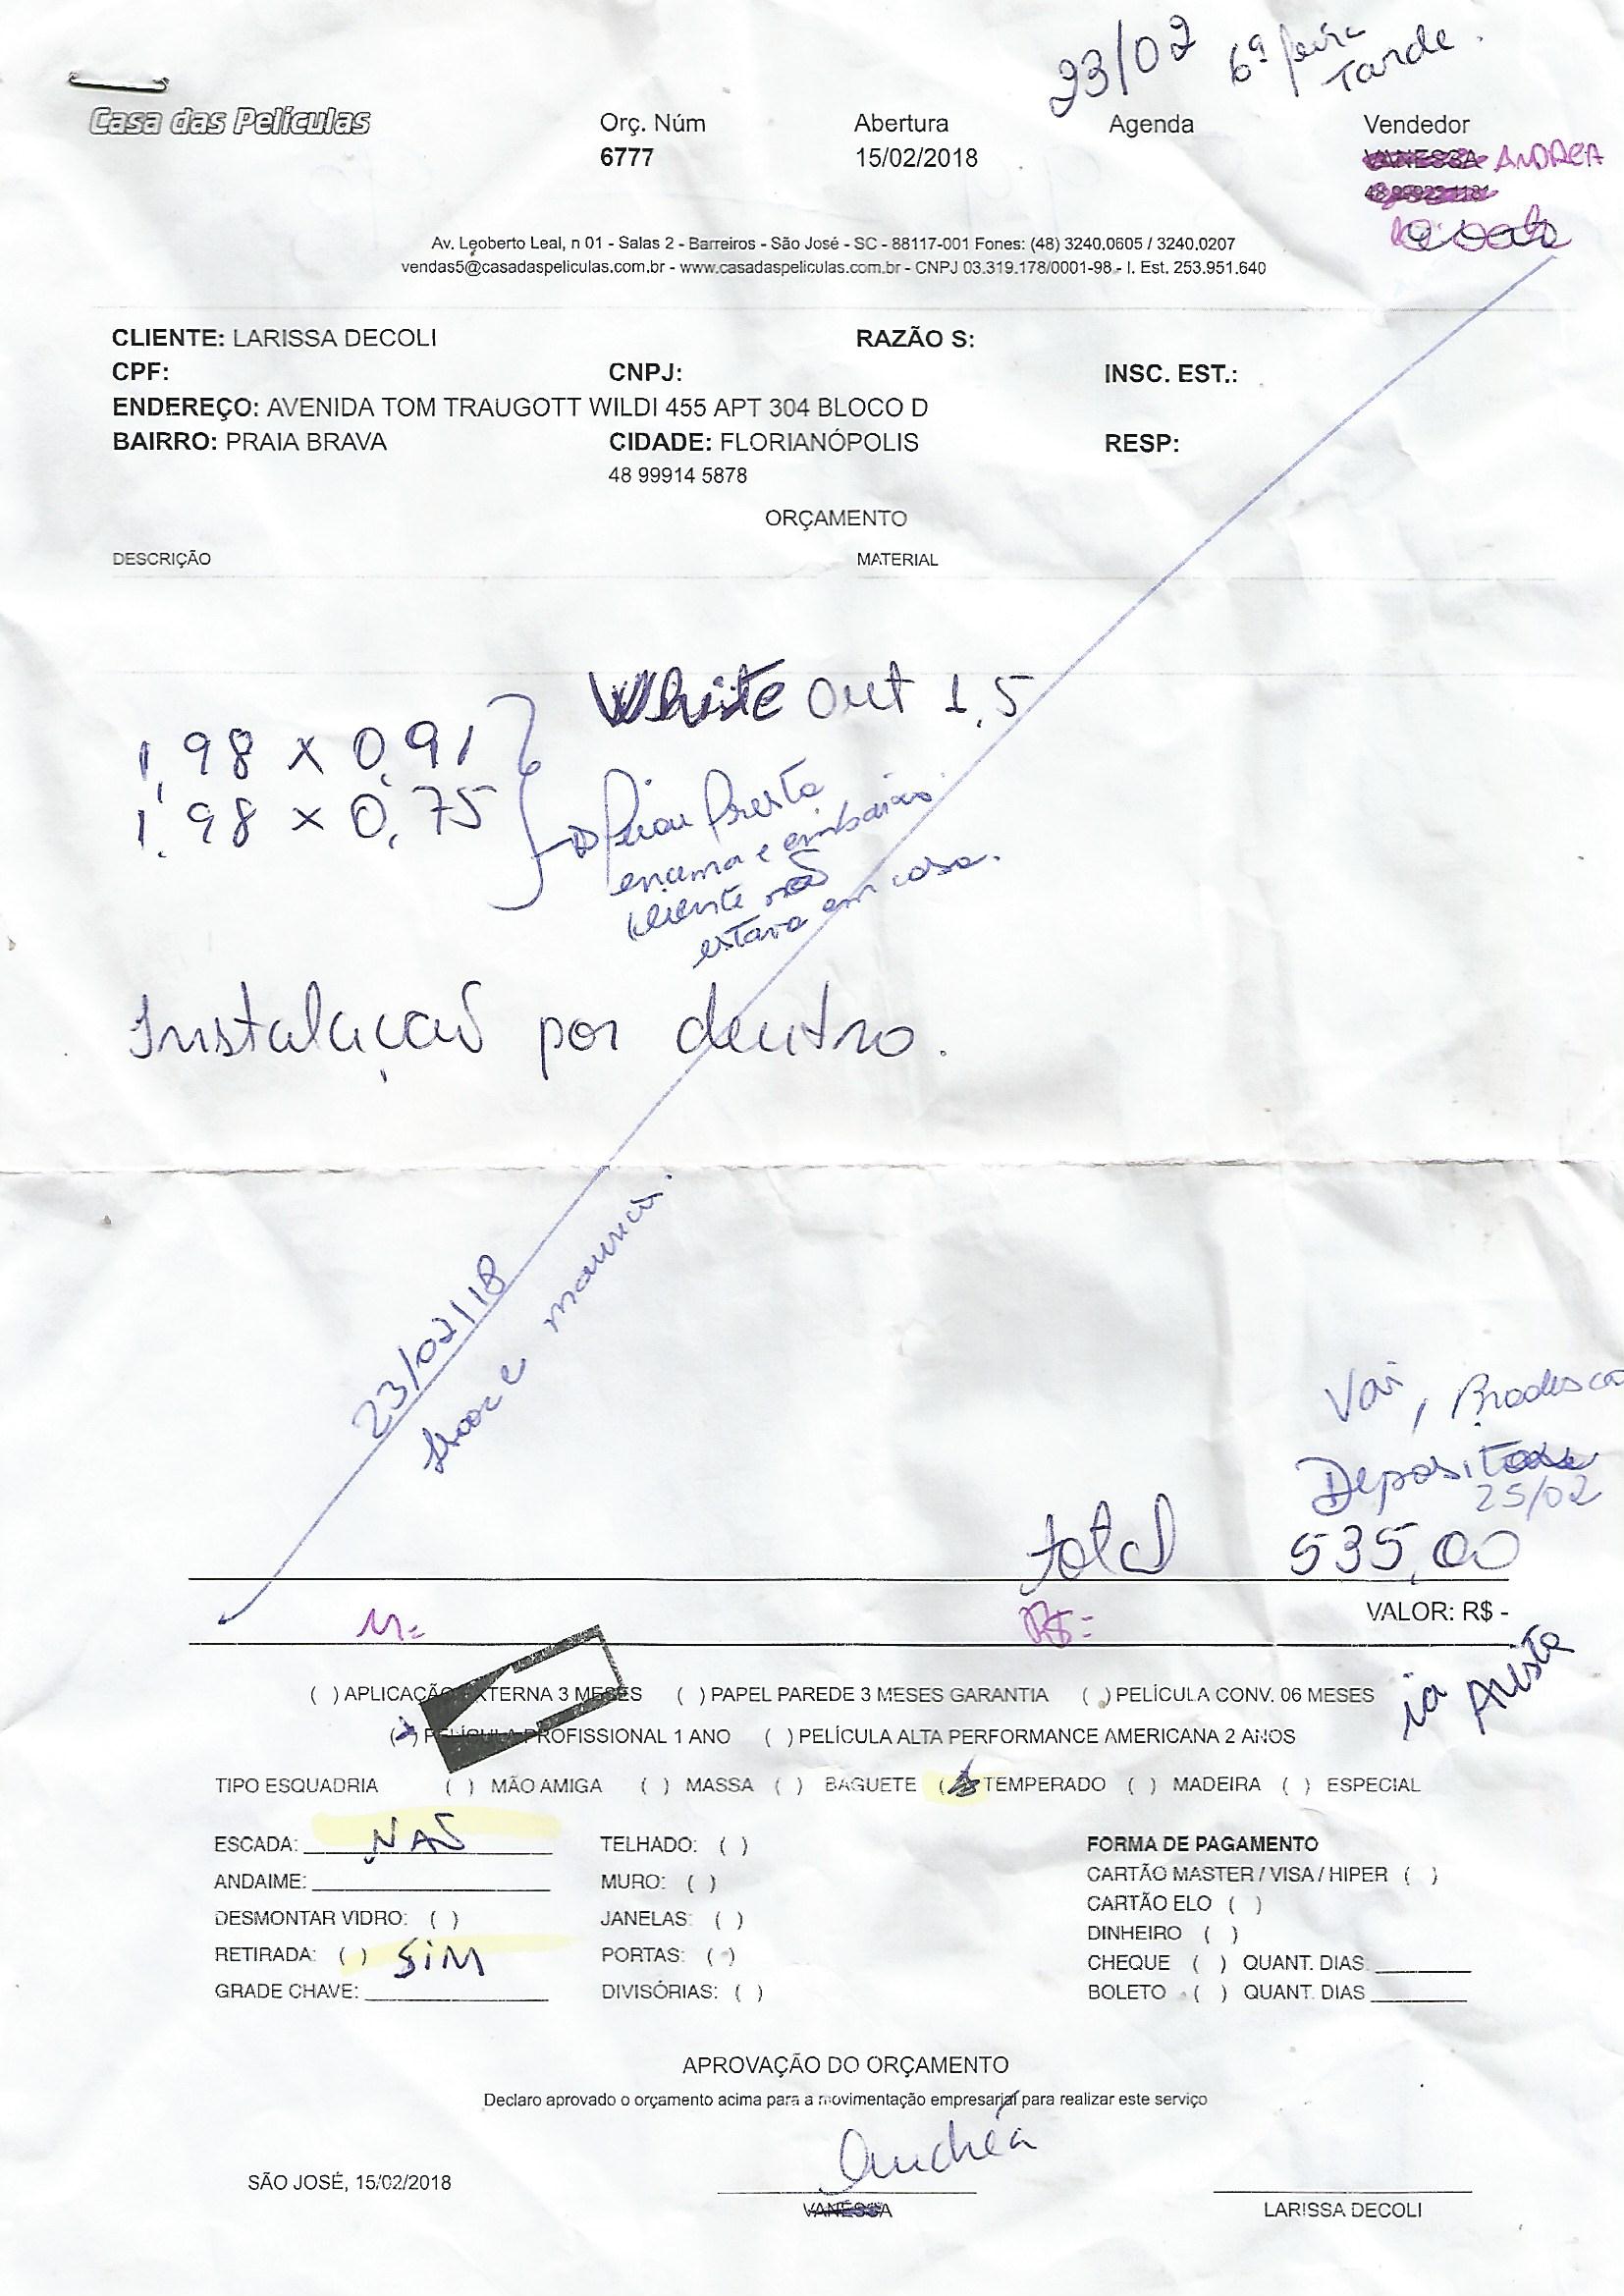 23/02 6ª feira
Tarde.
Casa das Películas
Orç. Núm Abertura Agenda Vendedor
6777 15/02/2018 VANESSA ANDREA
Av. Leoberto Leal, n 01 - Salas 2 - Barreiros - São José - SC - 88117-001 Fones: (48) 3240.0605 / 3240.0207
vendas5@casadaspeliculas.com.br - www.casadaspeliculas.com.br - CNPJ 03.319.178/0001-98 - I. Est. 253.951.640
CLIENTE: LARISSA DECOLI RAZÃO S:
CPF: CNPJ: INSC. EST.:
ENDEREÇO: AVENIDA TOM TRAUGOTT WILDI 455 APT 304 BLOCO D
BAIRRO: PRAIA BRAVA CIDADE: FLORIANÓPOLIS RESP:
48 99914 5878
ORÇAMENTO
DESCRIÇÃO MATERIAL
White Out 1,5
1,98 x 0,91
1,98 x 0,75
encima e embaixo
cliente não
estava em casa.
Instalação por dentro.
23/02/18
Vai, Bradesco
Deposito
25/02
total 535,00
M= R$= VALOR: R$ -
ia Avista
( ) APLICAÇÃO EXTERNA 3 MESES ( ) PAPEL PAREDE 3 MESES GARANTIA ( ) PELÍCULA CONV. 06 MESES
(x) PELÍCULA PROFISSIONAL 1 ANO ( ) PELÍCULA ALTA PERFORMANCE AMERICANA 2 ANOS
TIPO ESQUADRIA ( ) MÃO AMIGA ( ) MASSA ( ) BAGUETE (x) TEMPERADO ( ) MADEIRA ( ) ESPECIAL
ESCADA: NÃO TELHADO: ( ) FORMA DE PAGAMENTO
ANDAIME: MURO: ( ) CARTÃO MASTER / VISA / HIPER ( )
DESMONTAR VIDRO: ( ) JANELAS: ( ) CARTÃO ELO ( )
DINHEIRO ( )
RETIRADA: ( ) SIM PORTAS: ( ) CHEQUE ( ) QUANT. DIAS
GRADE CHAVE: DIVISÓRIAS: ( ) BOLETO ( ) QUANT. DIAS
APROVAÇÃO DO ORÇAMENTO
Declaro aprovado o orçamento acima para a movimentação empresarial para realizar este serviço
Andréa
SÃO JOSÉ, 15/02/2018
VANESSA LARISSA DECOLI